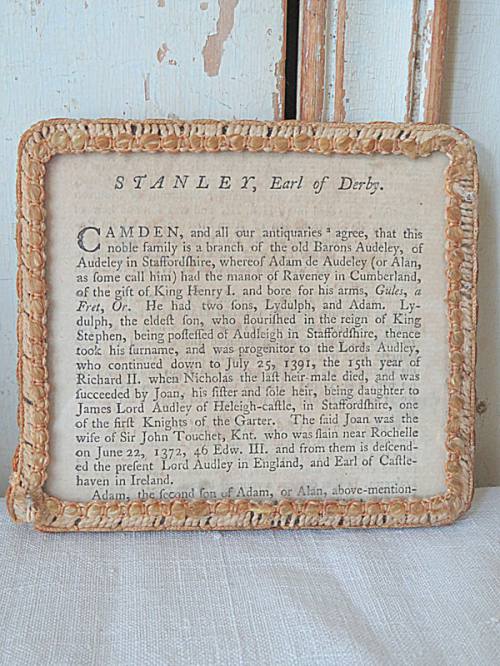 STANLEY, Earl of Derby.
CAMDEN, and all our antiquaries ᵃ agree, that this
noble family is a branch of the old Barons Audeley, of
Audeley in Staffordſhire, whereof Adam de Audeley (or Alan,
as ſome call him) had the manor of Raveney in Cumberland,
of the gift of King Henry I. and bore for his arms, Gules, a
Fret, Or. He had two ſons, Lydulph, and Adam. Ly-
dulph, the eldeſt ſon, who flouriſhed in the reign of King
Stephen, being poſſeſſed of Audleigh in Staffordſhire, thence
took his ſurname, and was progenitor to the Lords Audley,
who continued down to July 25, 1391, the 15th year of
Richard II. when Nicholas the laſt heir-male died, and was
ſucceeded by Joan, his ſiſter and ſole heir, being daughter to
James Lord Audley of Heleigh-caſtle, in Staffordſhire, one
of the firſt Knights of the Garter. The ſaid Joan was the
wife of Sir John Touchet, Knt. who was ſlain near Rochelle
on June 22, 1372, 46 Edw. III. and from them is deſcend-
ed the preſent Lord Audley in England, and Earl of Caſtle-
haven in Ireland.
Adam, the ſecond ſon of Adam, or Alan, above-mention-